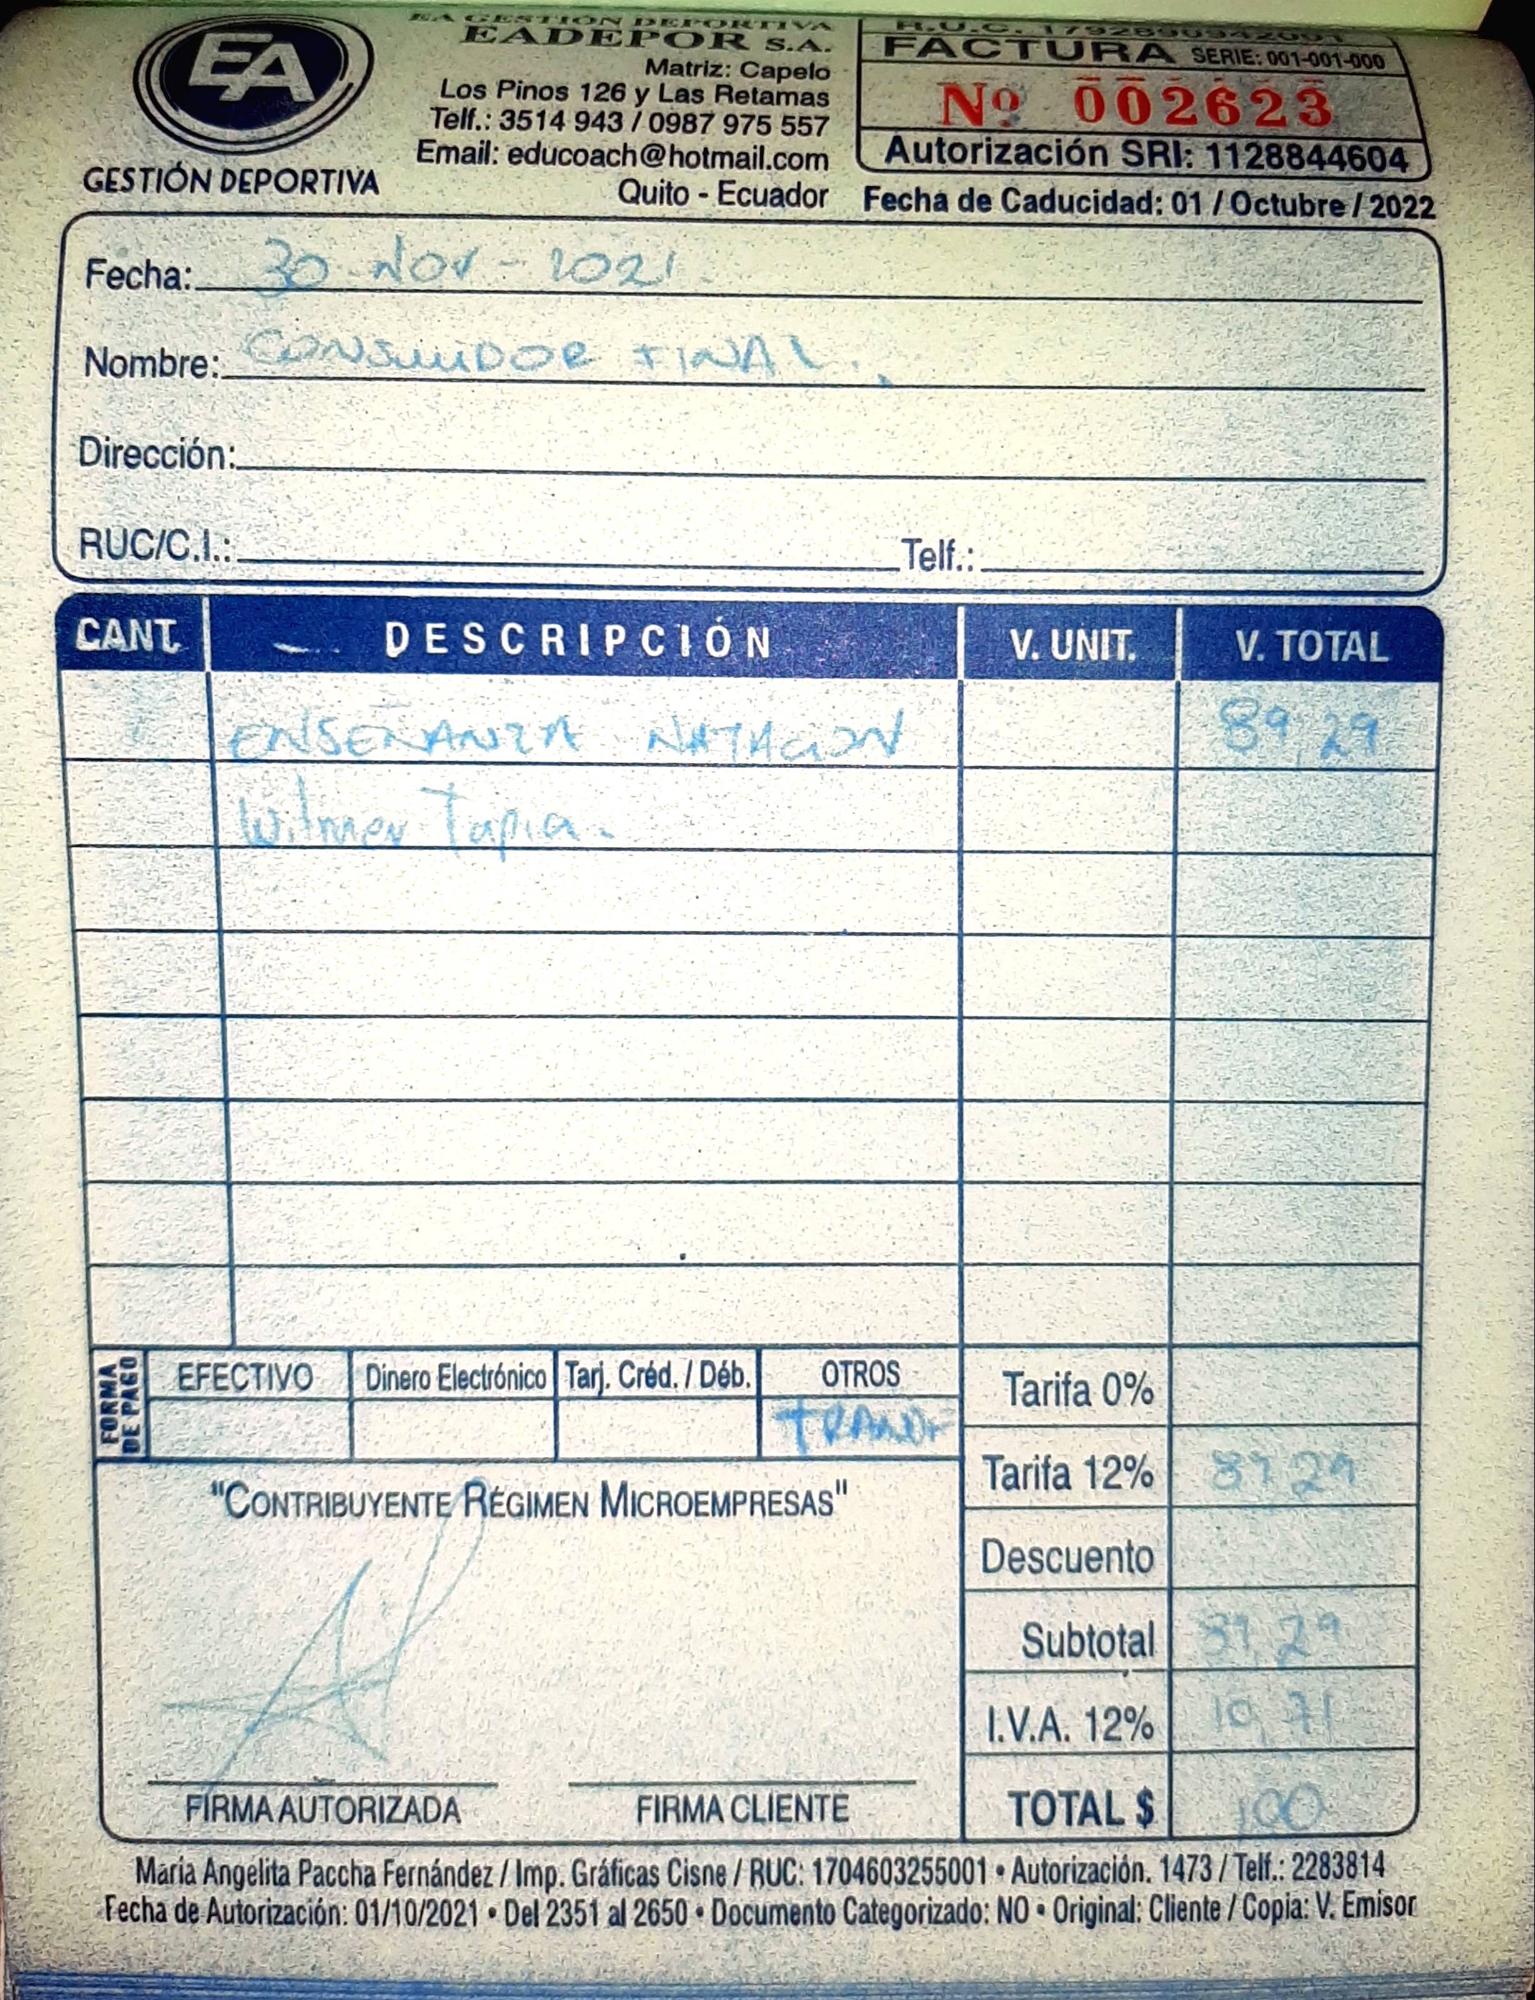 EA
GESTIÓN DEPORTIVA
EA GESTION DEPORTIVA
EADEPOR S.A.
Matriz: Capelo
Los Pinos 126 y Las Retamas
Telf.: 3514 943 / 0987 975 557
Email: educoach@hotmail.com
Quito - Ecuador
R.U.C. 1792890942001
FACTURA SERIE: 001-001-000
Nº 002623
Autorización SRI: 1128844604
Fecha de Caducidad: 01 / Octubre / 2022
Fecha: 30 - Nov - 2021
Nombre: CONSUMIDOR FINAL.
Dirección:
RUC/C.I.: Telf.:
CANT. DESCRIPCIÓN V. UNIT. V. TOTAL
ENSEÑANZA NATACION 89,29
Wilmer Tapia.
FORMA DE PAGO
EFECTIVO Dinero Electrónico Tarj. Créd. / Déb. OTROS
TRANSF
Tarifa 0%
Tarifa 12% 89,29
Descuento
Subtotal 89,29
I.V.A. 12% 10,71
TOTAL $ 100
"CONTRIBUYENTE RÉGIMEN MICROEMPRESAS"
FIRMA AUTORIZADA FIRMA CLIENTE
María Angelita Paccha Fernández / Imp. Gráficas Cisne / RUC: 1704603255001 • Autorización. 1473 / Telf.: 2283814
Fecha de Autorización: 01/10/2021 • Del 2351 al 2650 • Documento Categorizado: NO • Original: Cliente / Copia: V. Emisor